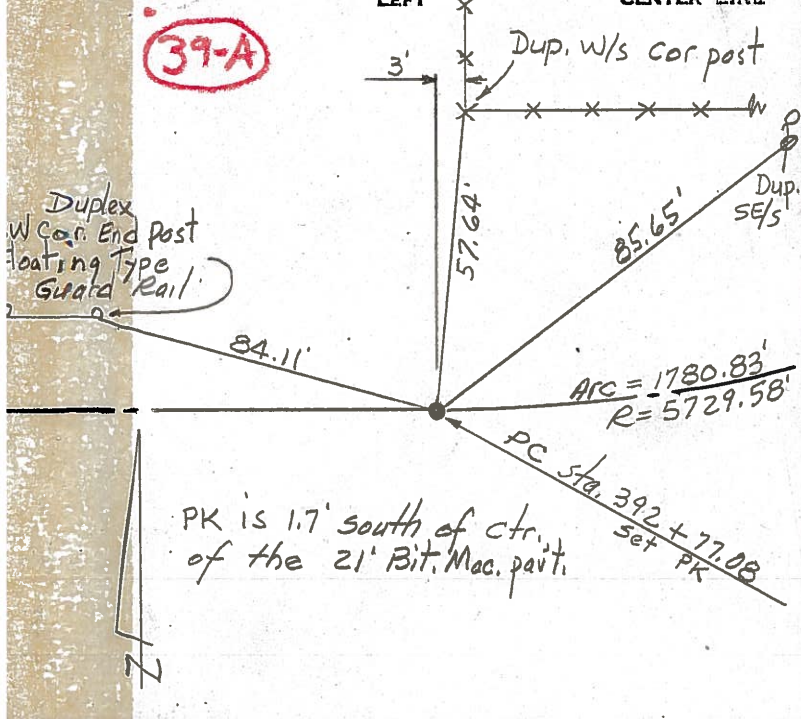 LEFT
CENTER LINE
39-A
3'
Dup. W/s Cor post
Dup.
SE/s
57.64'
85.65'
Duplex
W Cor. End post
loating Type
Guard Rail
84.11'
Arc = 1780.83'
R = 5729.58'
PC sta. 392 + 77.08
set PK
PK is 1.7' south of ctr.
of the 21' Bit. Mac. pav't.